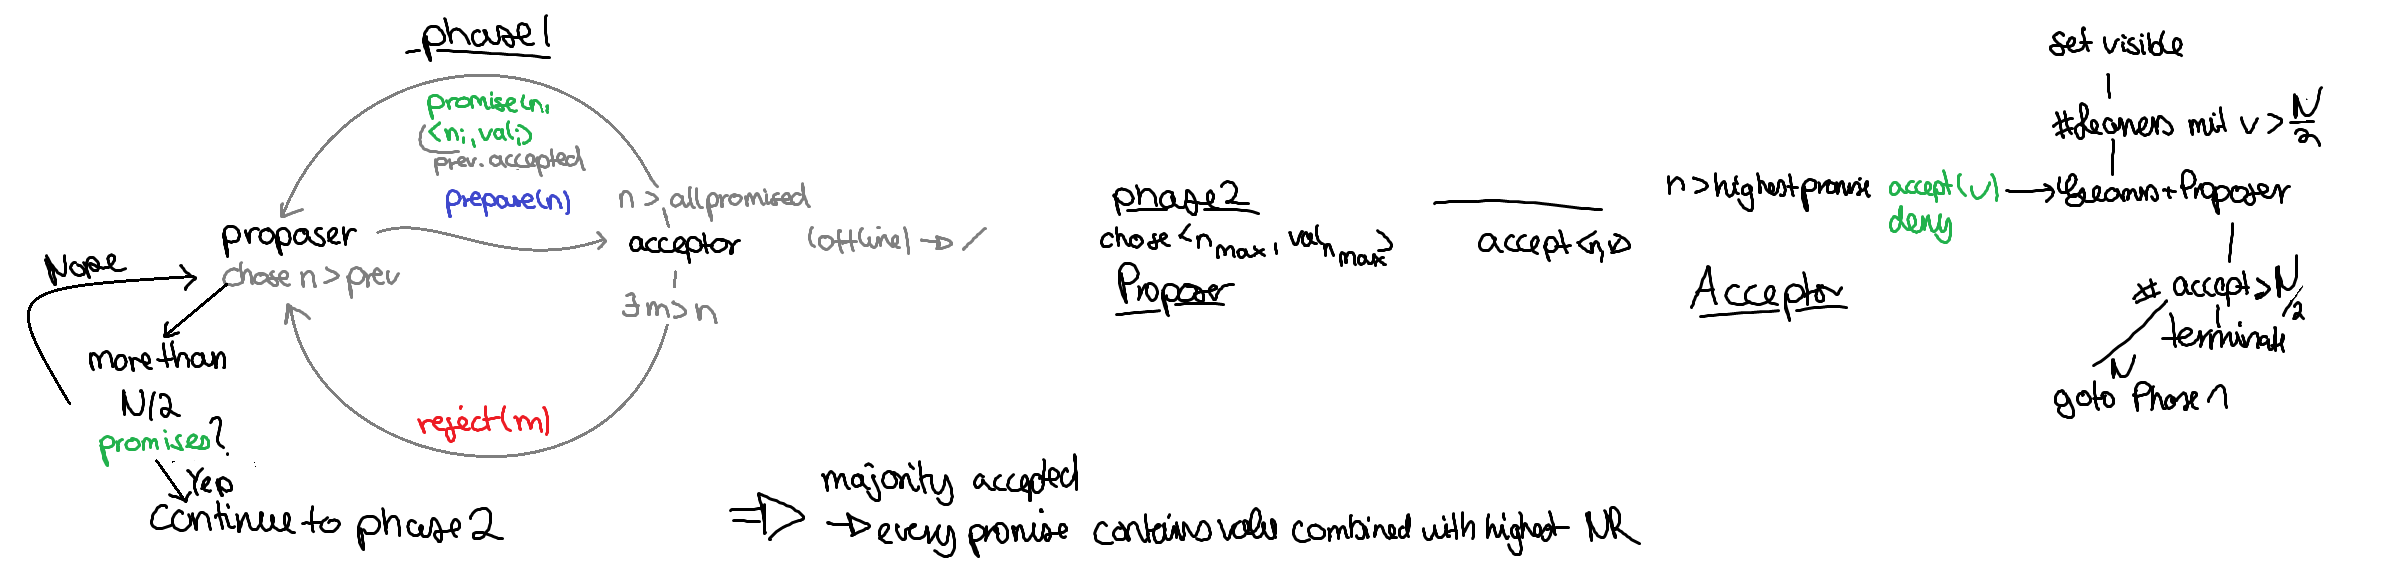 phase1
promise(n,
<ni, vali>
prev. accepted
prepare(n)
n > all promised
proposer
acceptor
(offline) → /
Nope
chose n > prev
∃ m > n
more than
N/2
promises?
reject(m)
Yep
continue to phase 2
phase2
chose <n max, val n max>
Proposer
accept <n, v>
n > highest promise
accept(v)
deny
Acceptor
set visible
#Leaners mit v > N/2
Leaners + Proposer
# accept > N/2
terminate
N
goto Phase 1
⇒ majority accepted
→ every promise contains value combined with highest NR